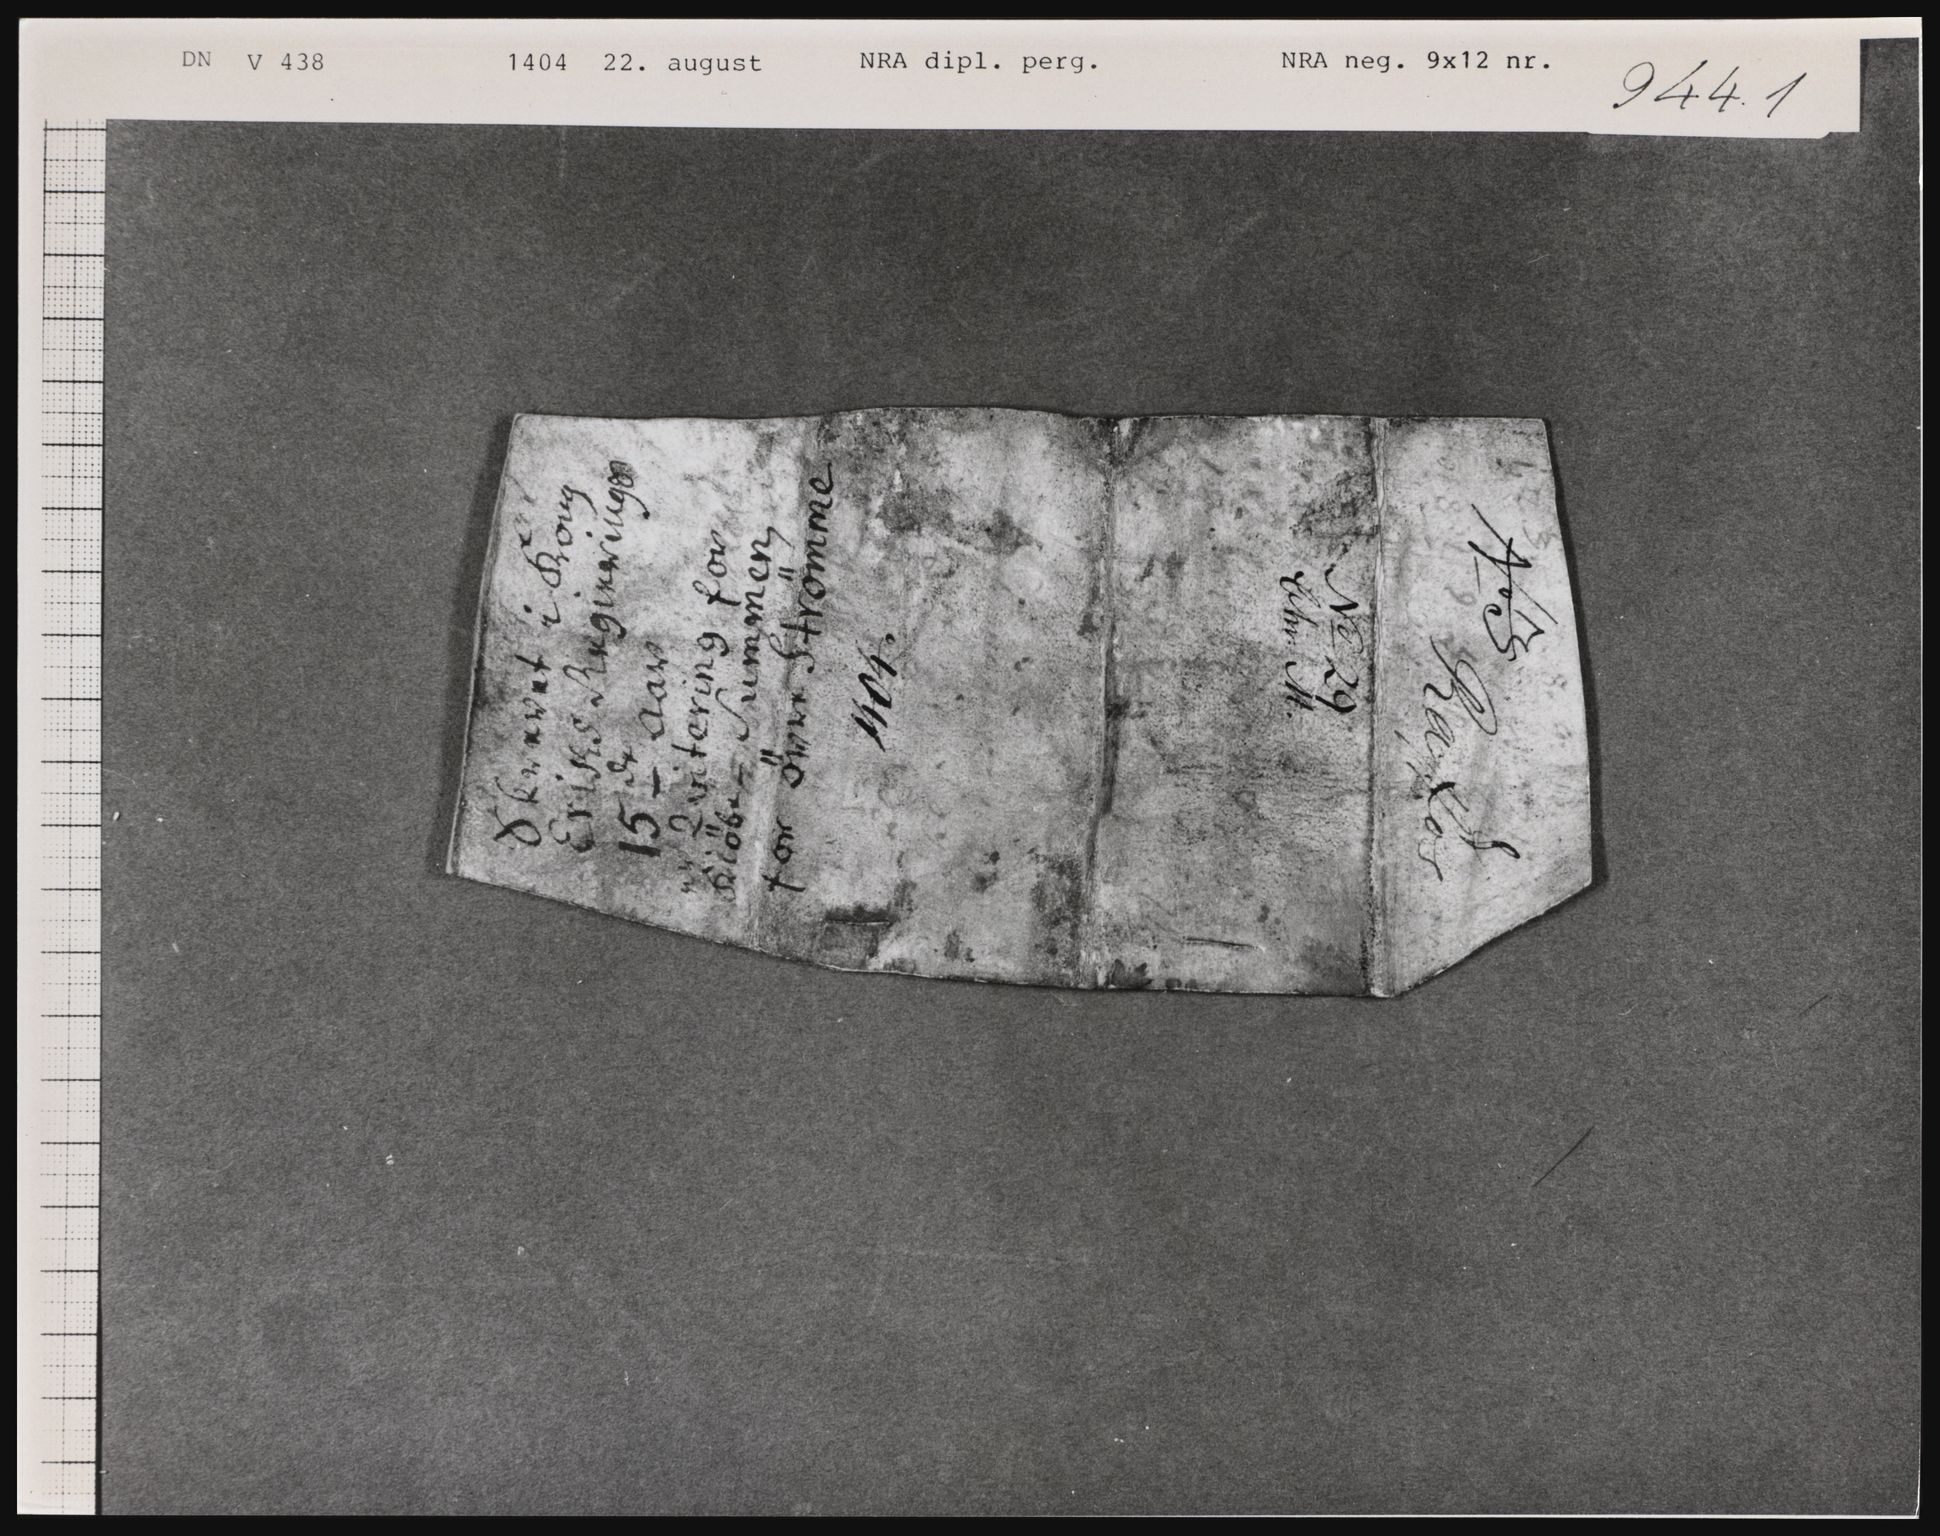 DN V 438 1404 22. august NRA dipl. perg. NRA neg. 9x12 nr. 944.1
Skrevet i Kong
Erichs Regierings
15de Aar
Qvitering for
Kiöbe Summen
for öwre Strømme
1404.
No 29
Chr. M.
No 3